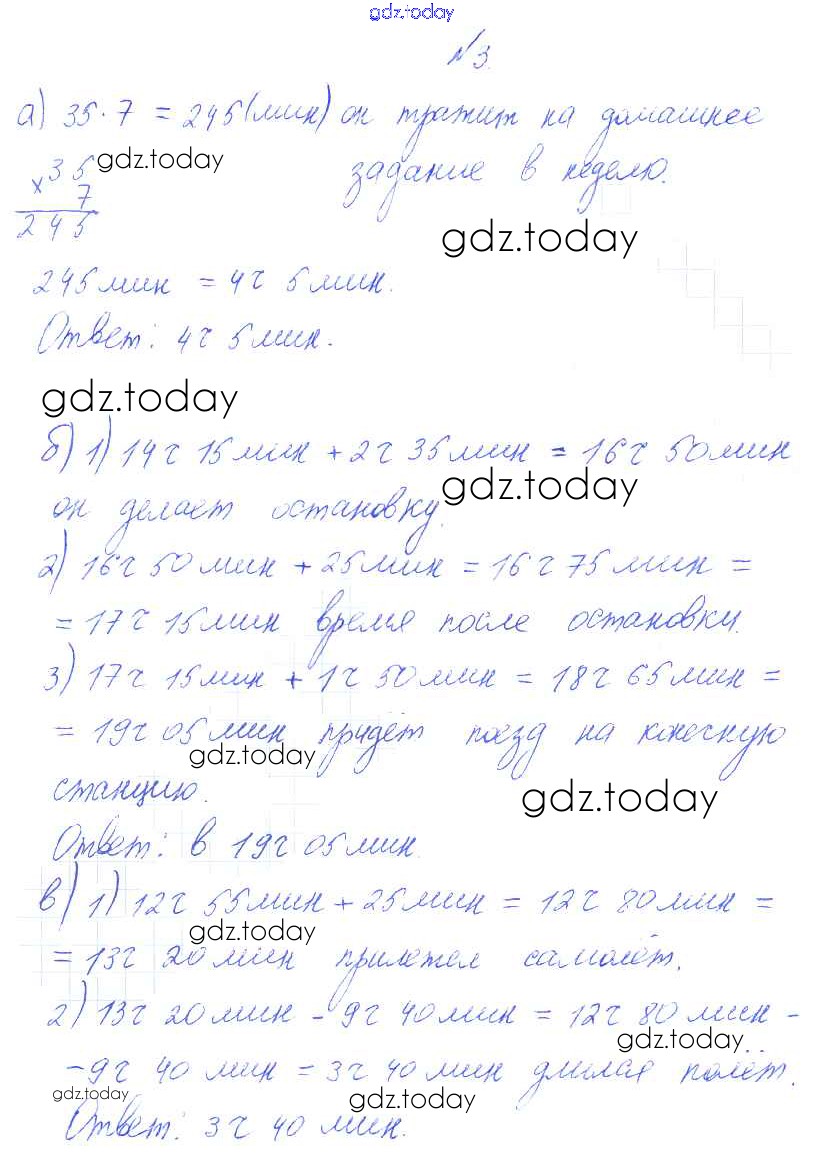 gdz.today
№3.
а) 35·7 = 245(мин) он тратит на домашнее
задание в неделю.
gdz.today
×35
7
245
gdz.today
245мин = 4ч 5мин.
Ответ: 4ч 5мин.
gdz.today
б) 1) 14ч 15мин + 2ч 35мин = 16ч 50мин
gdz.today
он делает остановку.
2) 16ч 50мин + 25мин = 16ч 75мин =
= 17ч 15мин время после остановки.
3) 17ч 15мин + 1ч 50мин = 18ч 65мин =
= 19ч 05мин придёт поезд на конечную
gdz.today
станцию.
gdz.today
Ответ: в 19ч 05мин.
в) 1) 12ч 55мин + 25мин = 12ч 80мин =
gdz.today
= 13ч 20мин прилетел самолёт.
2) 13ч 20мин - 9ч 40мин = 12ч 80мин -
gdz.today
- 9ч 40мин = 3ч 40мин длился полёт.
gdz.today
gdz.today
Ответ: 3ч 40мин.